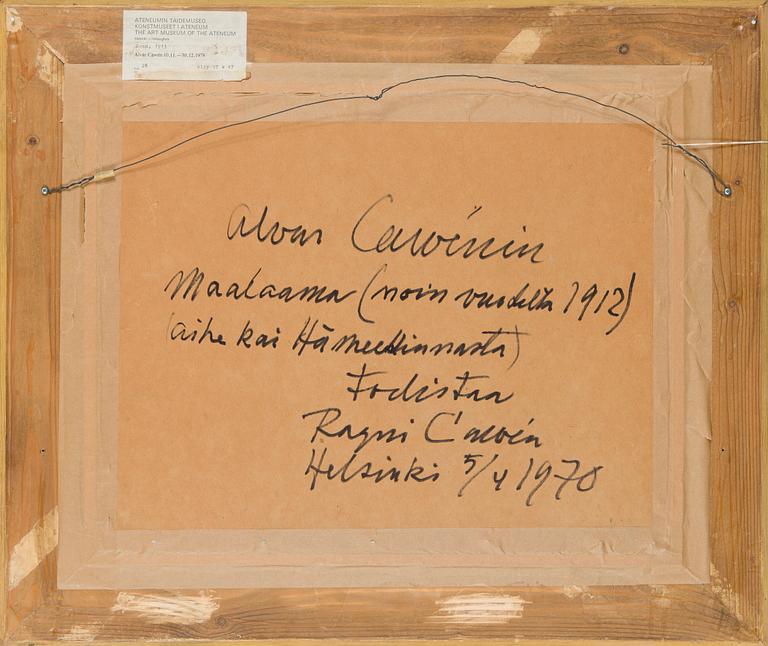 ATENEUMIN TAIDEMUSEO
KONSTMUSEET I ATENEUM
THE ART MUSEUM OF THE ATENEUM
Alvar Cawén 10.11.—30.12.1978
Alvar Cawénin
Maalaama (noin vuodelta 1912)
(aihe kai Hämeelinnasta)
todistaa
Ragni Cawén
Helsinki 5/4 1970